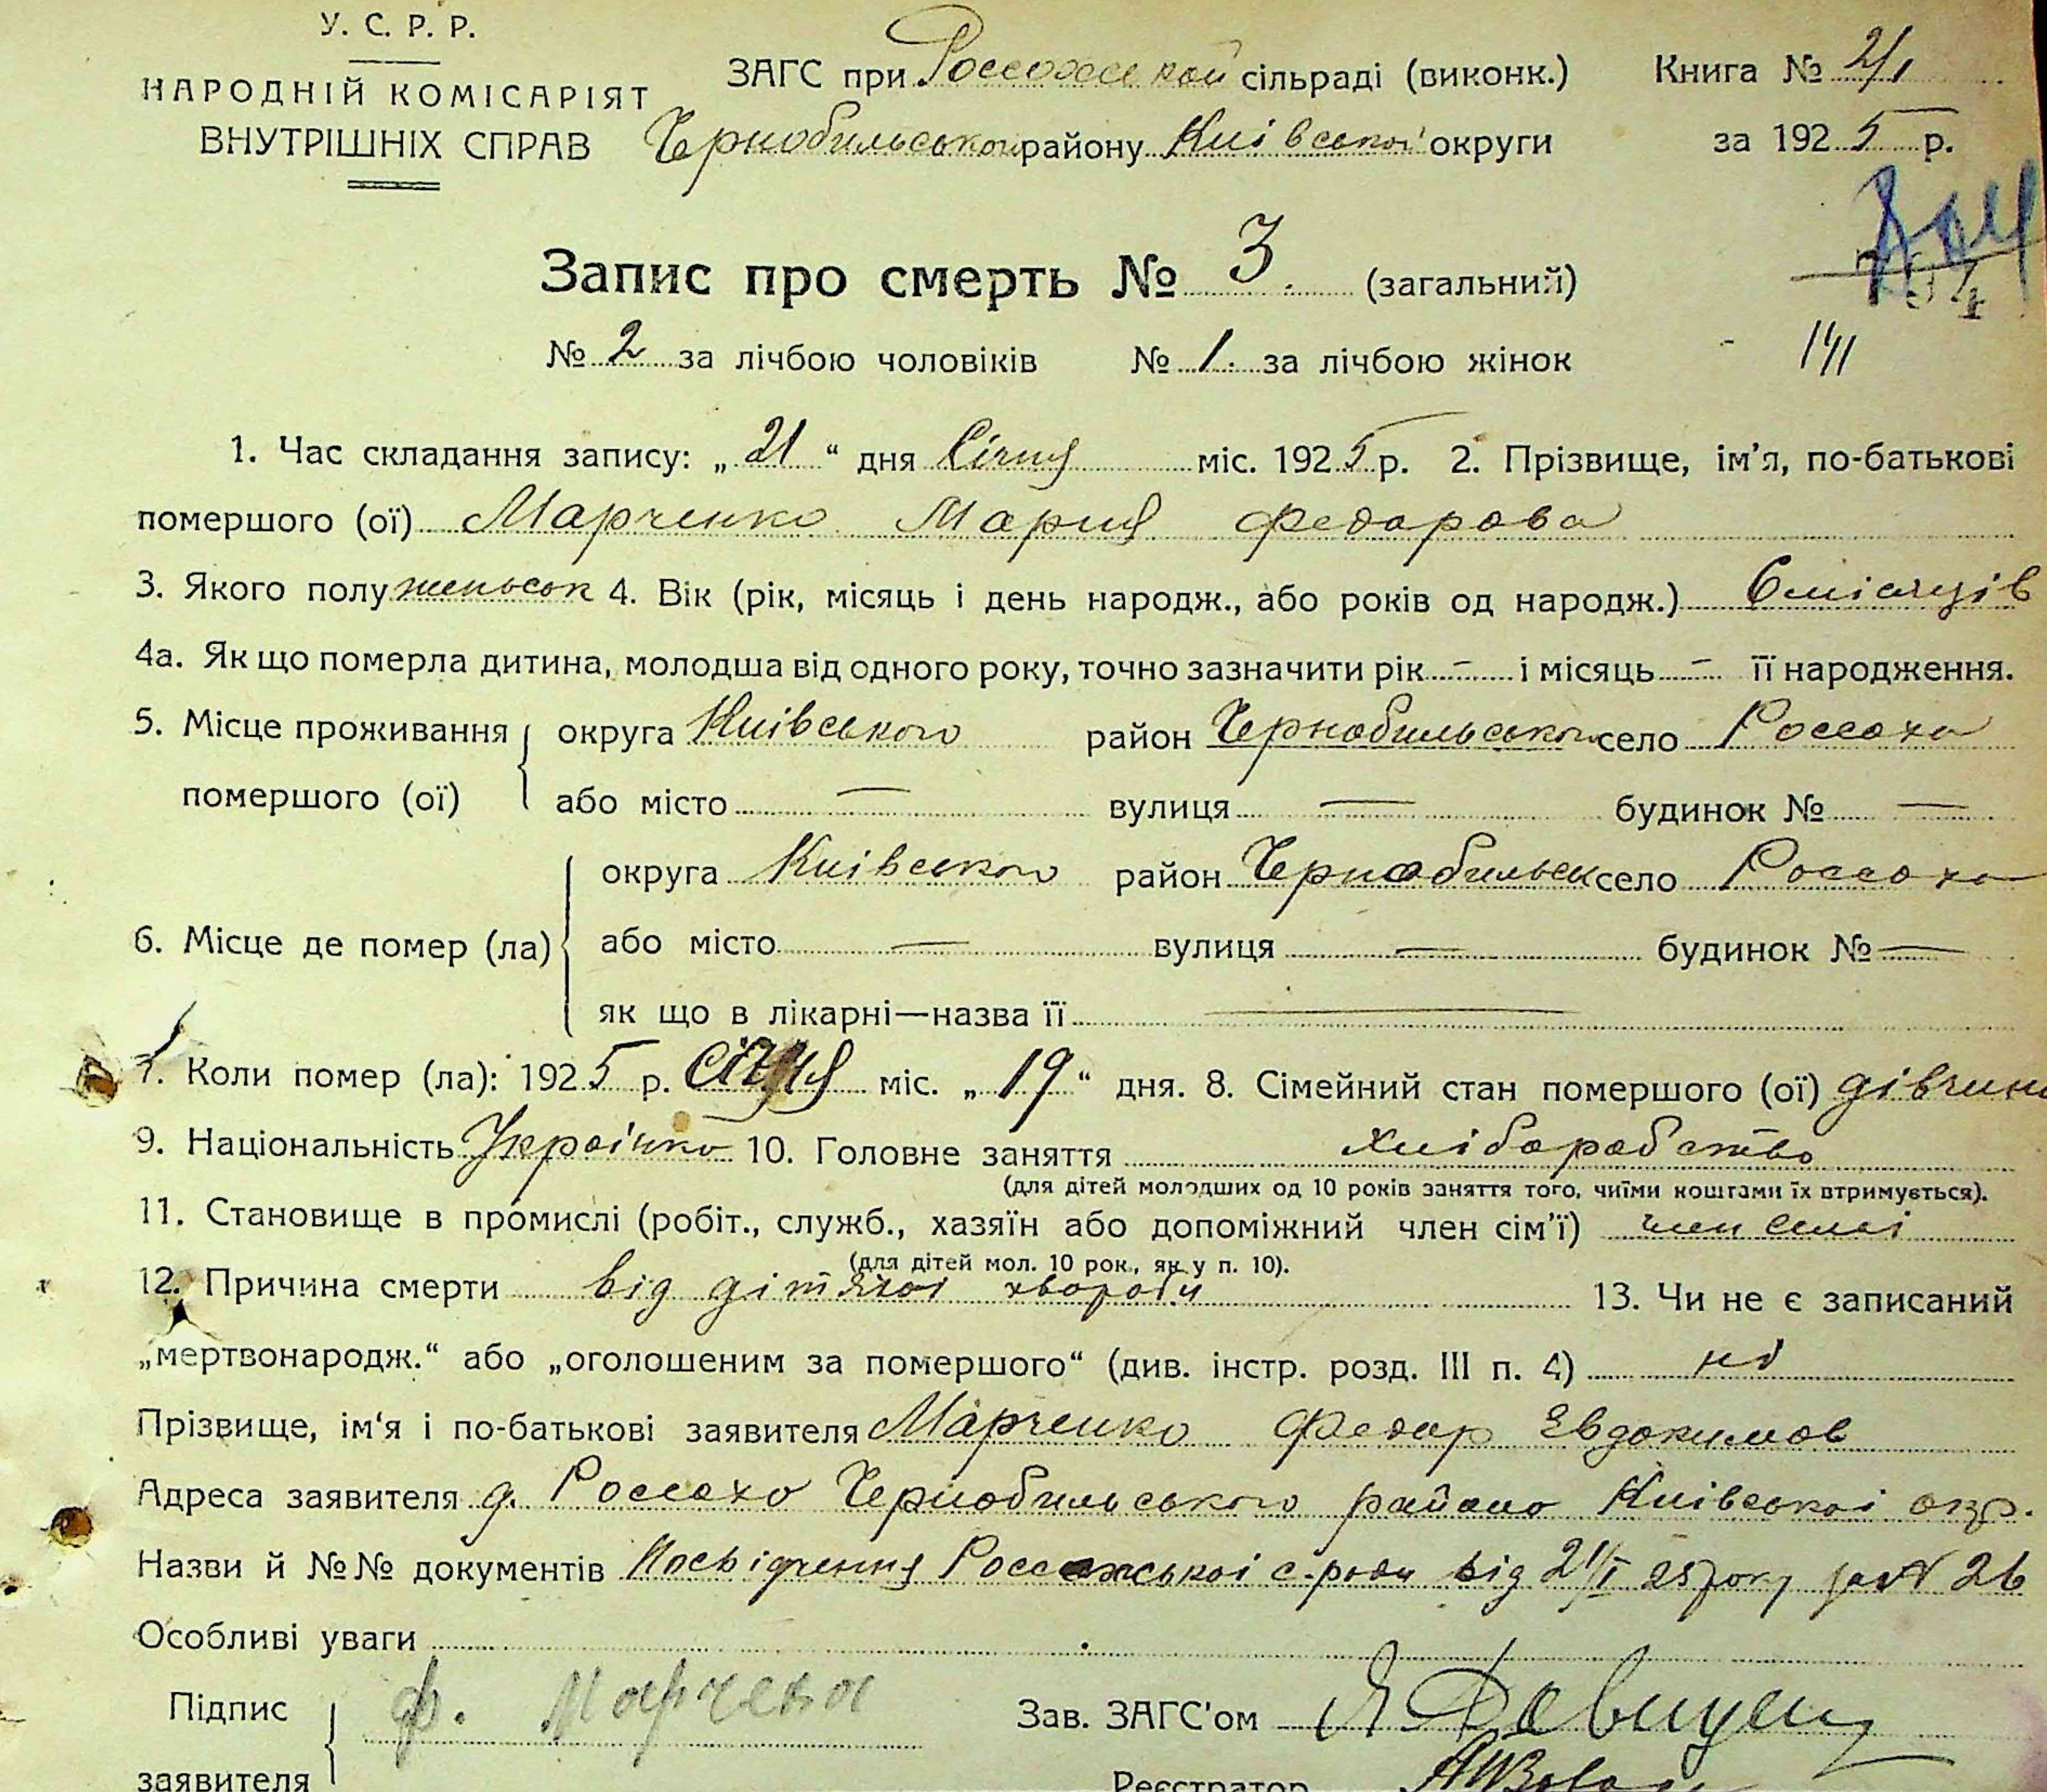 У. С. Р. Р.
НАРОДНІЙ КОМІСАРІЯТ
ВНУТРІШНІХ СПРАВ
ЗАГС при Россохской сільраді (виконк.)
Чернобильського району Київської округи
Книга № 2/1
за 1925 р.
Запис про смерть № 3. (загальний)
№ 2 за лічбою чоловіків № 1. за лічбою жінок
141
1. Час складання запису: „ 21 “ дня Січня міс. 1925 р. 2. Прізвище, ім’я, по-батькові
помершого (ої) Марченко Мария Федарова
3. Якого полу женьськ 4. Вік (рік, місяць і день народж., або років од народж.) 6 місяців
4а. Як що померла дитина, молодша від одного року, точно зазначити рік — і місяць — її народження.
5. Місце проживання округа Киівського район Чернобильського село Россоха
помершого (ої) або місто — вулиця — будинок № —
округа Киівського район Чернобильськ село Россоха
6. Місце де помер (ла) або місто — вулиця — будинок № —
як що в лікарні—назва її —
7. Коли помер (ла): 1925 р. Січня міс. „ 19 “ дня. 8. Сімейний стан помершого (ої) дівчина
9. Національність Украінка 10. Головне заняття хлібарабство
(для дітей молодших од 10 років заняття того, чиїми коштами їх втримується).
11. Становище в промислі (робіт., служб., хазяїн або допоміжний член сім’ї) член семі
(для дітей мол. 10 рок., як у п. 10).
12. Причина смерти від дітячоі хвороби 13. Чи не є записаний
„мертвонародж.“ або „оголошеним за помершого“ (див. інстр. розд. III п. 4) ні
Прізвище, ім‘я і по-батькові заявителя Марченко Федар Евдокимов
Адреса заявителя д. Россохо Чернобильського району Киівськоі окр.
Назви й №№ документів Посвідчення Россохськоі с-ради від 21/I 25 року за № 26
Особливі уваги
Підпис
заявителя
Ф. Марченка
Зав. ЗАГС'ом
Реєстратор